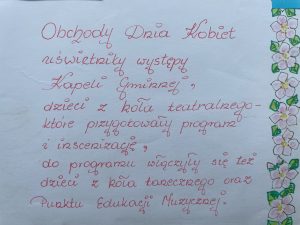 Obchody Dnia Kobiet
uświetniły występy
Kapeli Gminnej,
dzieci z koła teatralnego-
które przygotowały program
i inscenizację,
do programu włączyły się też
dzieci z koła tanecznego oraz
Punktu Edukacji Muzycznej.